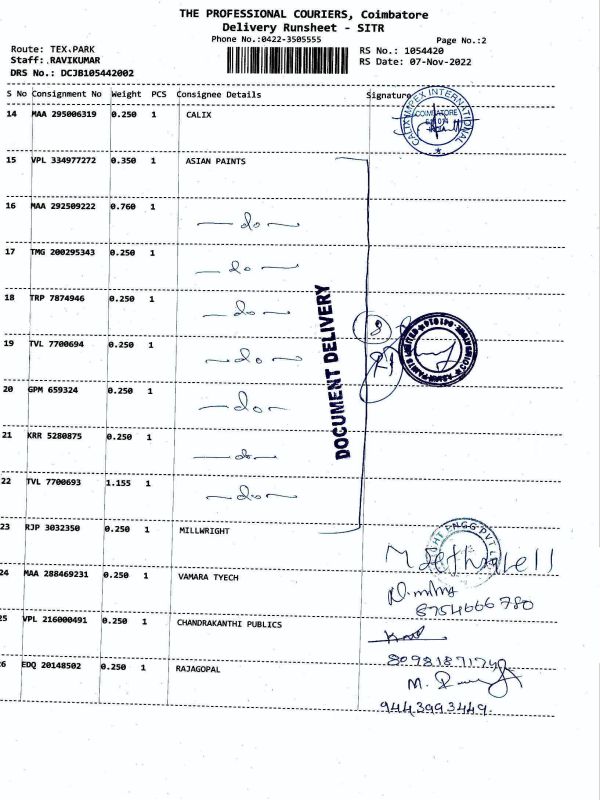 THE PROFESSIONAL COURIERS, Coimbatore
Delivery Runsheet - SITR
Phone No.:0422-3505555
Page No.:2
Route: TEX.PARK
RS No.: 1054420
Staff: RAVIKUMAR
RS Date: 07-Nov-2022
DRS No.: DCJB105442002
S No Consignment No Weight PCS Consignee Details Signature
14 MAA 295006319 0.250 1 CALIX
CALIX IMPEX INTERNATIONAL
COIMBATORE
INDIA
15 VPL 334977272 0.350 1 ASIAN PAINTS
16 MAA 292509222 0.760 1
— do —
17 TMG 200295343 0.250 1
— do —
18 TRP 7874946 0.250 1
— do —
DOCUMENT DELIVERY
8
19 TVL 7700694 0.250 1
— do —
20 GPM 659324 0.250 1
— do —
21 KRR 5280875 0.250 1
— do —
22 TVL 7700693 1.155 1
— do —
23 RJP 3032350 0.250 1 MILLWRIGHT
HT ENGG PVT L
24 MAA 288469231 0.250 1 VAMARA TYECH
8754666780
25 VPL 216000491 0.250 1 CHANDRAKANTHI PUBLICS
26 EDQ 20148502 0.250 1 RAJAGOPAL
9443993449.